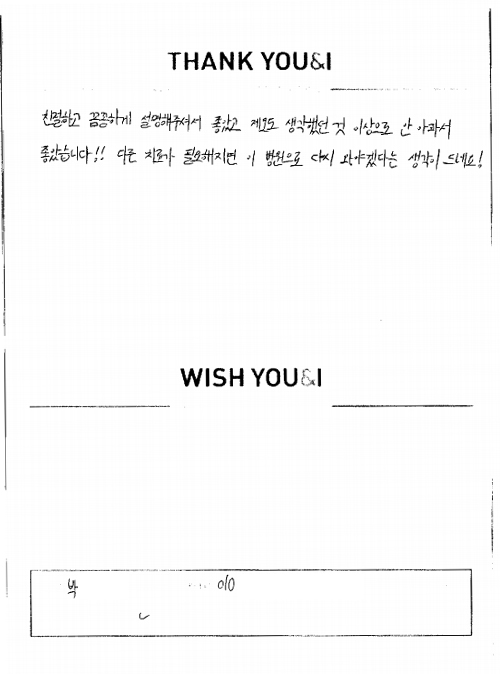 THANK YOU&I
친절하고 꼼꼼하게 설명해주셔서 좋았고 제모도 생각했던 것 이상으로 안 아파서
좋았습니다!! 다른 치료가 필요해지면 이 병원으로 다시 와야겠다는 생각이 드네요!
WISH YOU&I
박 010